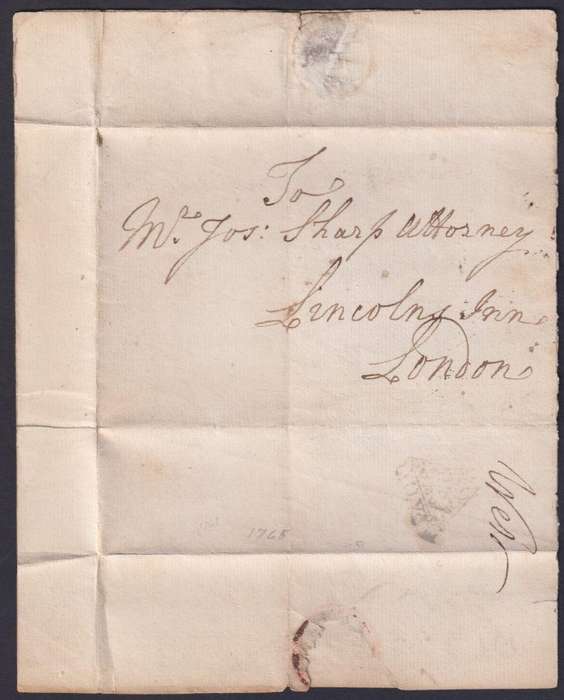 To
Mr. Jos: Sharp Attorney
Lincolns Inn
London
1765